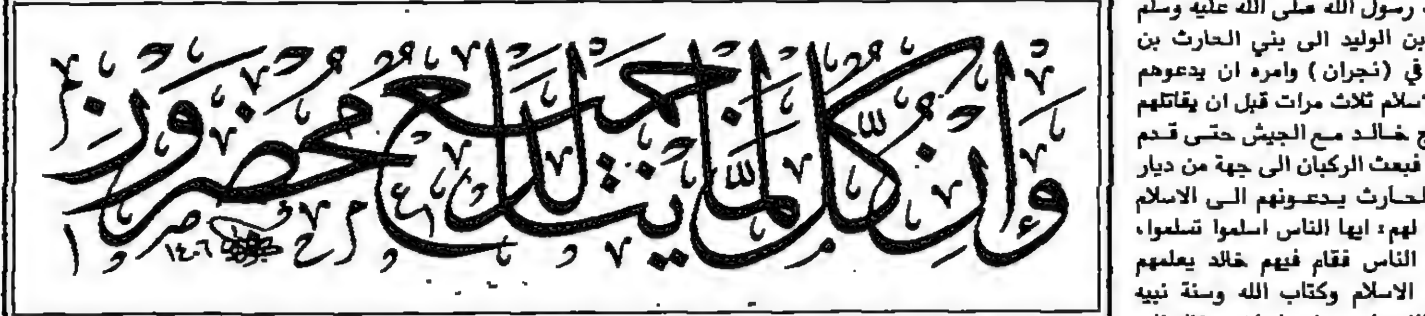 وَإِن كُلٌّ لَّمَّا جَمِيعٌ لَّدَيْنَا مُحْضَرُونَ
١٤٠٦
رسول الله صلى الله عليه وسلم
بن الوليد الى بني الحارث بن
في (نجران) وامره ان يدعوهم
سلام ثلاث مرات قبل ان يقاتلهم
ج خالد مع الجيش حتى قدم
فبعث الركبان الى جهة من ديار
لحارث يدعونهم الى الاسلام
لهم: ايها الناس اسلموا تسلموا،
الناس فقام فيهم خالد يعلمهم
الاسلام وكتاب الله وسنة نبيه